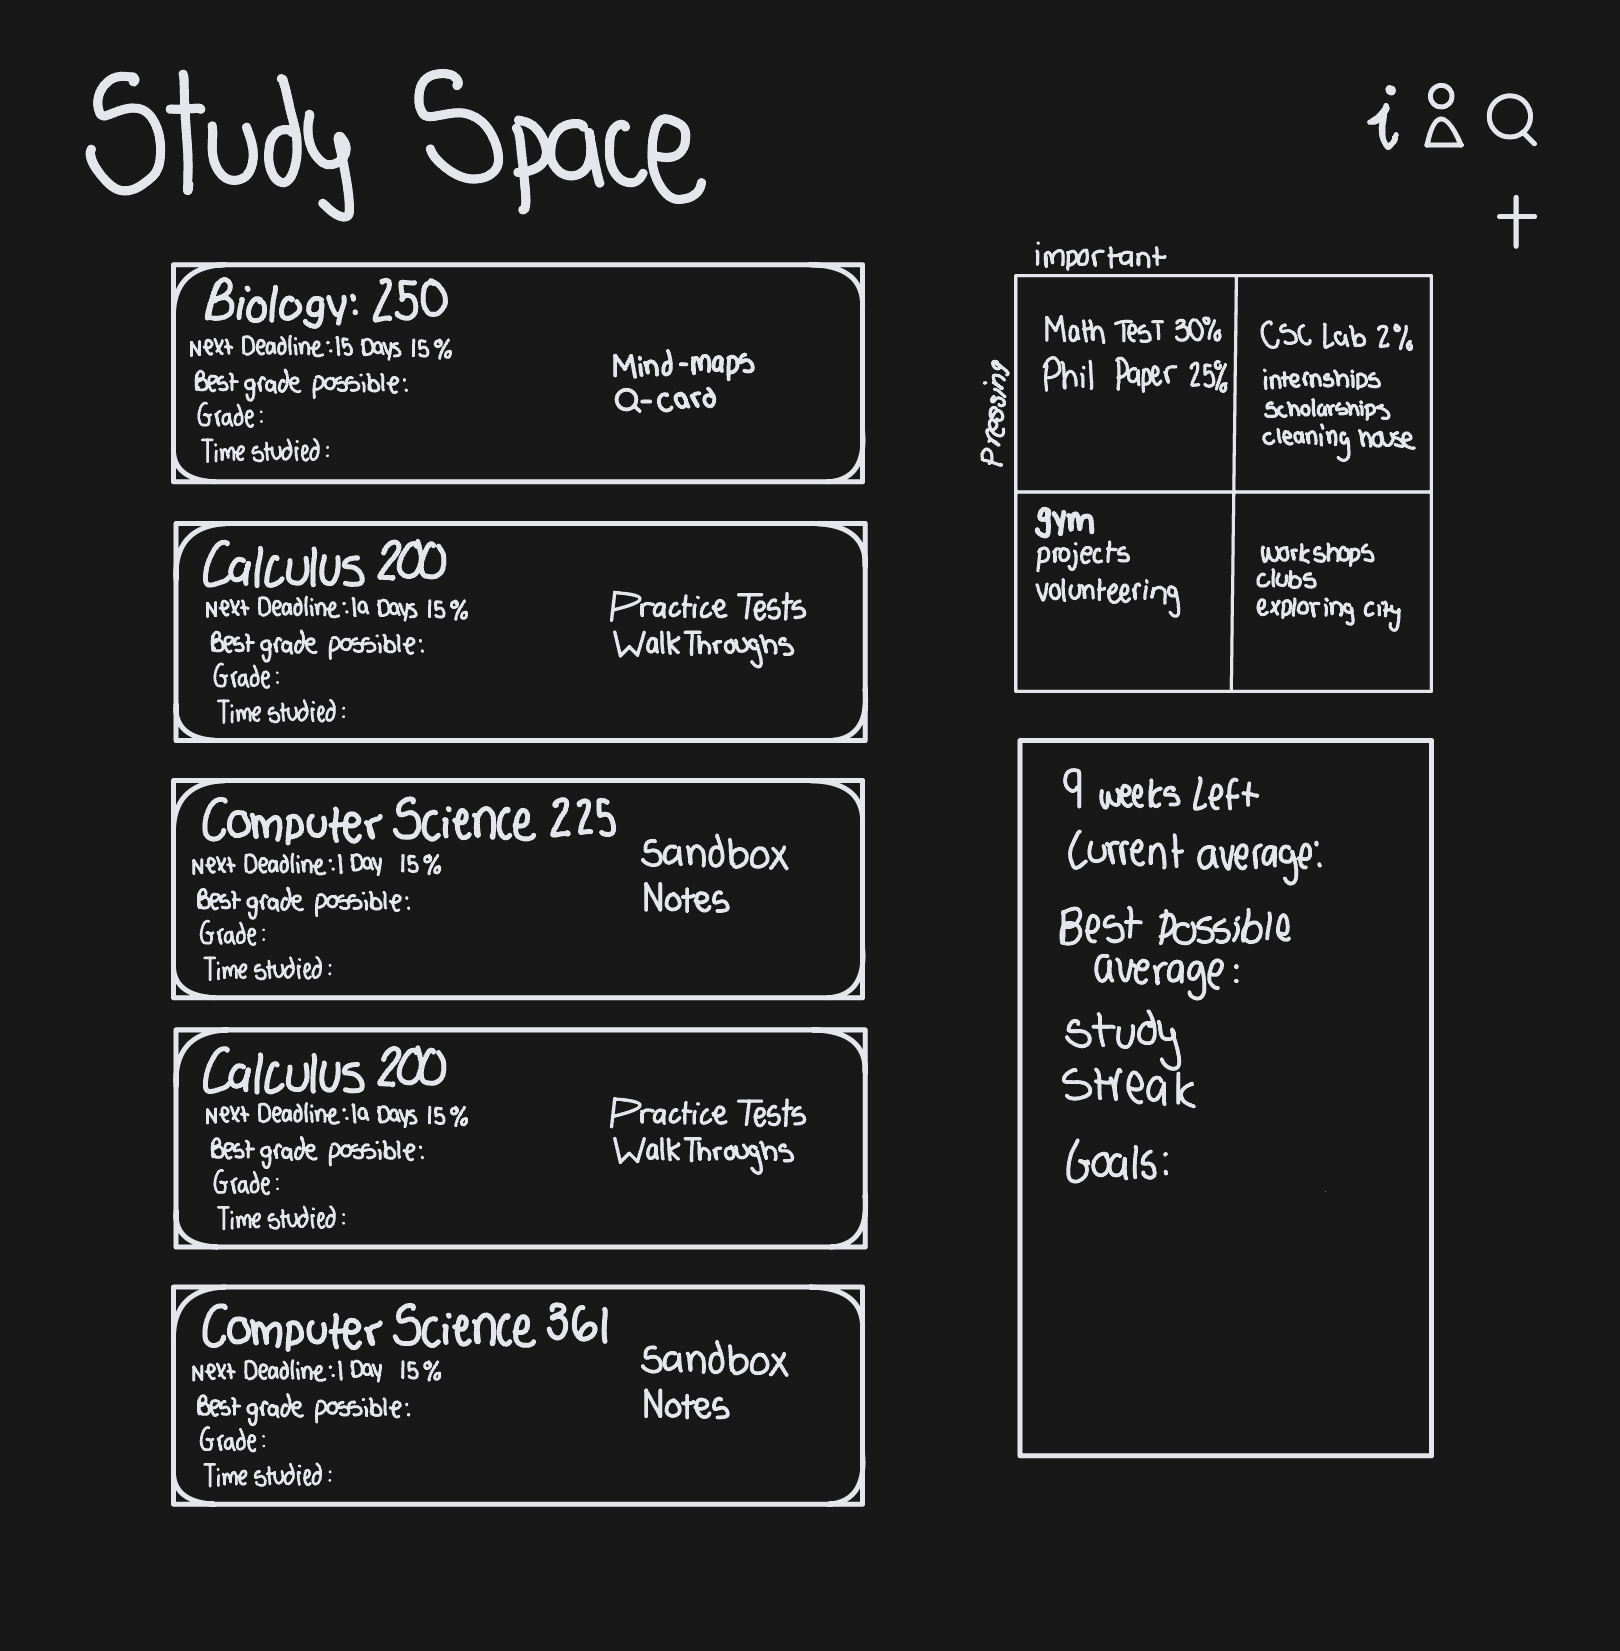 Study Space
i
Biology: 250
Next Deadline: 15 Days 15%
Best grade possible:
Grade:
Time studied:
Mind-maps
Q-card
Calculus 200
Next Deadline: 10 Days 15%
Best grade possible:
Grade:
Time studied:
Practice Tests
Walk Throughs
Computer Science 225
Next Deadline: 1 Day 15%
Best grade possible:
Grade:
Time studied:
Sandbox
Notes
Calculus 200
Next Deadline: 10 Days 15%
Best grade possible:
Grade:
Time studied:
Practice Tests
Walk Throughs
Computer Science 361
Next Deadline: 1 Day 15%
Best grade possible:
Grade:
Time studied:
Sandbox
Notes
important
Pressing
Math Test 30%
Phil Paper 25%
CSC Lab 2%
internships
scholarships
cleaning house
gym
projects
volunteering
workshops
clubs
exploring city
9 weeks Left
Current average:
Best Possible
average:
Study
Streak
Goals: